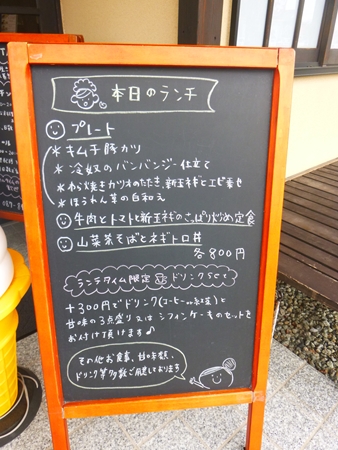 本日のランチ
プレート
*キムチ豚カツ
*冷奴のバンバンジー仕立て
*わら焼きカツオのたたき、新玉ネギとエビ乗せ
*ほうれん草の白和え
牛肉とトマトと新玉ネギのさっぱり炒め定食
山菜茶そばとネギトロ丼
各800円
ランチタイム限定 ドリンクSet
+300円でドリンク(コーヒーor紅茶)と
甘味の3点盛り又はシフォンケーキのセットを
お付けて頂けます♪
その他お食事、甘味類、
ドリンク等多数ご用意しております